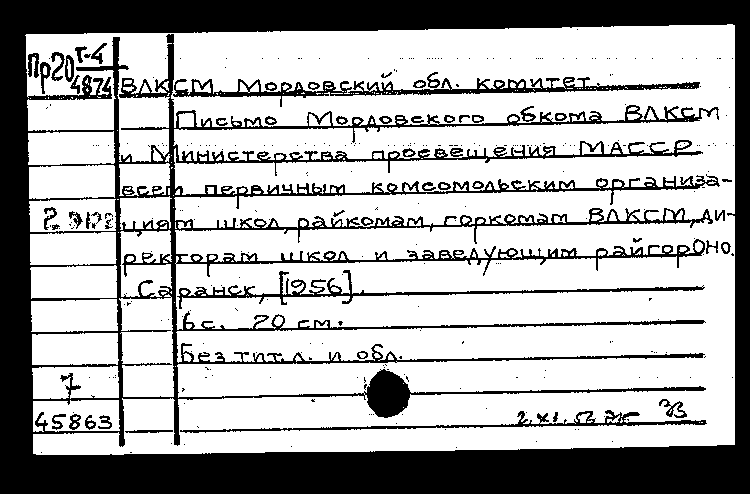 Пр20 Т-4/4874
ВЛКСМ. Мордовский обл. комитет.
Письмо Мордовского обкома ВЛКСМ
и Министерства просвещения МАССР
всем первичным комсомольским организа-
циям школ, райкомам, горкомам ВЛКСМ, ди-
ректорам школ и заведующим райгорОНО.
Саранск, [1956].
6 с. 20 см.
Без тит. л. и обл.
7
45863